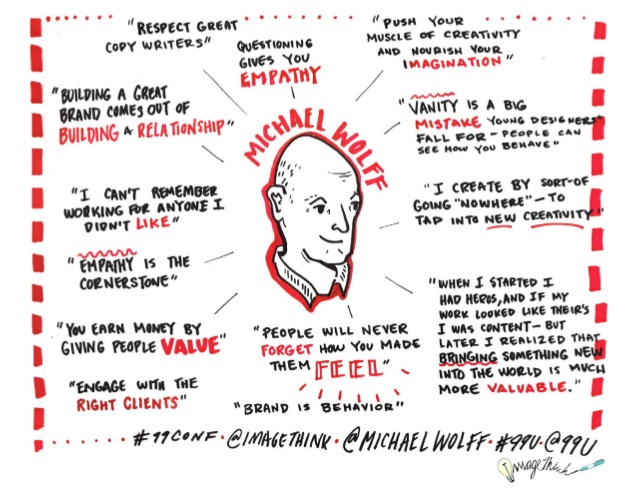 "RESPECT GREAT
COPY WRITERS"
QUESTIONING
GIVES YOU
EMPATHY
"PUSH YOUR
MUSCLE OF CREATIVITY
AND NOURISH YOUR
IMAGINATION"
"BUILDING A GREAT
BRAND COMES OUT OF
BUILDING A RELATIONSHIP"
MICHAEL WOLFF
"VANITY IS A BIG
MISTAKE YOUNG DESIGNERS
FALL FOR - PEOPLE CAN
SEE HOW YOU BEHAVE"
"I CAN'T REMEMBER
WORKING FOR ANYONE I
DIDN'T LIKE"
"I CREATE BY SORT-OF
GOING "NOWHERE" - TO
TAP INTO NEW CREATIVITY"
"EMPATHY IS THE
CORNERSTONE"
"YOU EARN MONEY BY
GIVING PEOPLE VALUE"
"ENGAGE WITH THE
RIGHT CLIENTS"
"PEOPLE WILL NEVER
FORGET HOW YOU MADE
THEM FEEL"
"BRAND IS BEHAVIOR"
"WHEN I STARTED I
HAD HEROS, AND IF MY
WORK LOOKED LIKE THEIR'S
I WAS CONTENT - BUT
LATER I REALIZED THAT
BRINGING SOMETHING NEW
INTO THE WORLD IS MUCH
MORE VALUABLE."
#99CONF · @IMAGETHINK · @MICHAELWOLFF · #99U · @99U
ImageThink